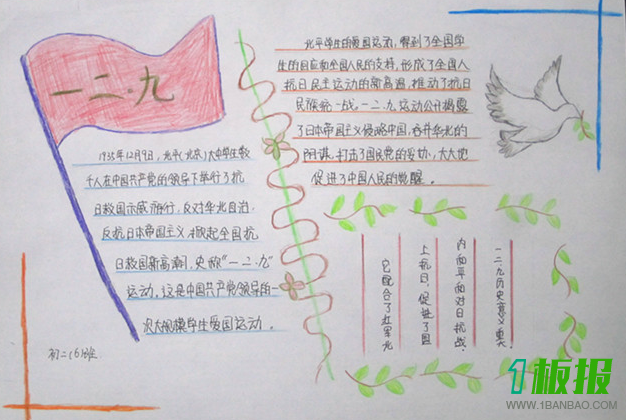 一二·九
1935年12月9日，北平（北京）大中学生数
千人在中国共产党的领导下举行了抗
日救国示威游行，反对华北自治，
反抗日本帝国主义，掀起全国抗
日救国新高潮，史称“一二·九”
运动，这是中国共产党领导的一
次大规模学生爱国运动。
初二（6）班
北平学生的爱国运动，得到了全国学
生的响应和全国人民的支持，形成了全国人
民抗日民主运动的新高潮，推动了抗日
民族统一战一二·九运动公开揭露
了日本帝国主义侵略中国，吞并华北的
阴谋，打击了国民党的妥协，大大地
促进了中国人民的觉醒。
一二·九历史意义重大
内和平和对日抗战。
上抗日，促进了国
它配合了红军北
1板报
WWW.1BANBAO.COM